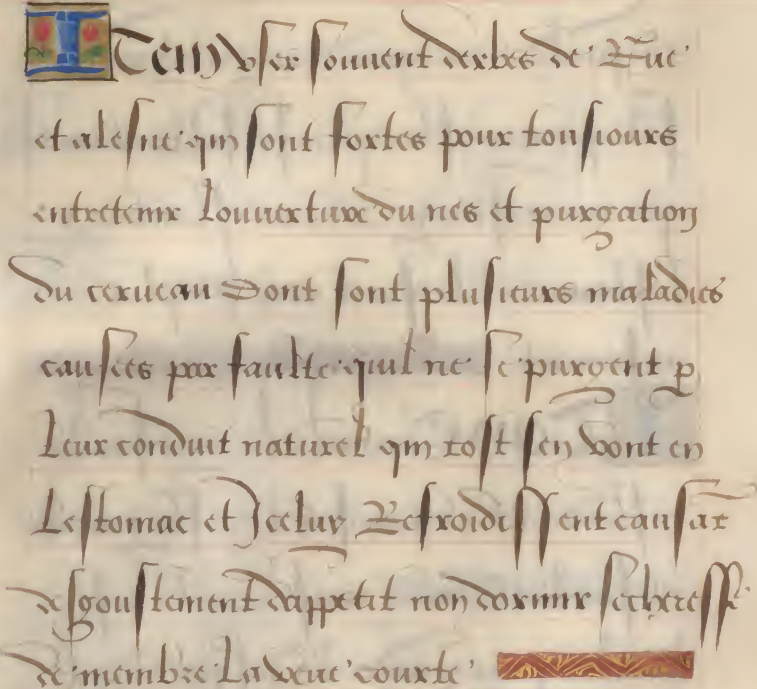 Item vser souuent derbes de Rue
et alesne qui sont fortes pour tousiours
entretenir louuerture du nes et purgation
du cerueau Dont sont plusieurs maladies
causees par faulte quil ne se purgent p
Leur conduit naturel qui tost sen vont en
Lestomac et Jceluy Refroidissent causāt
desgoustement dappetit non dormir secheresse
de membre La veue courte